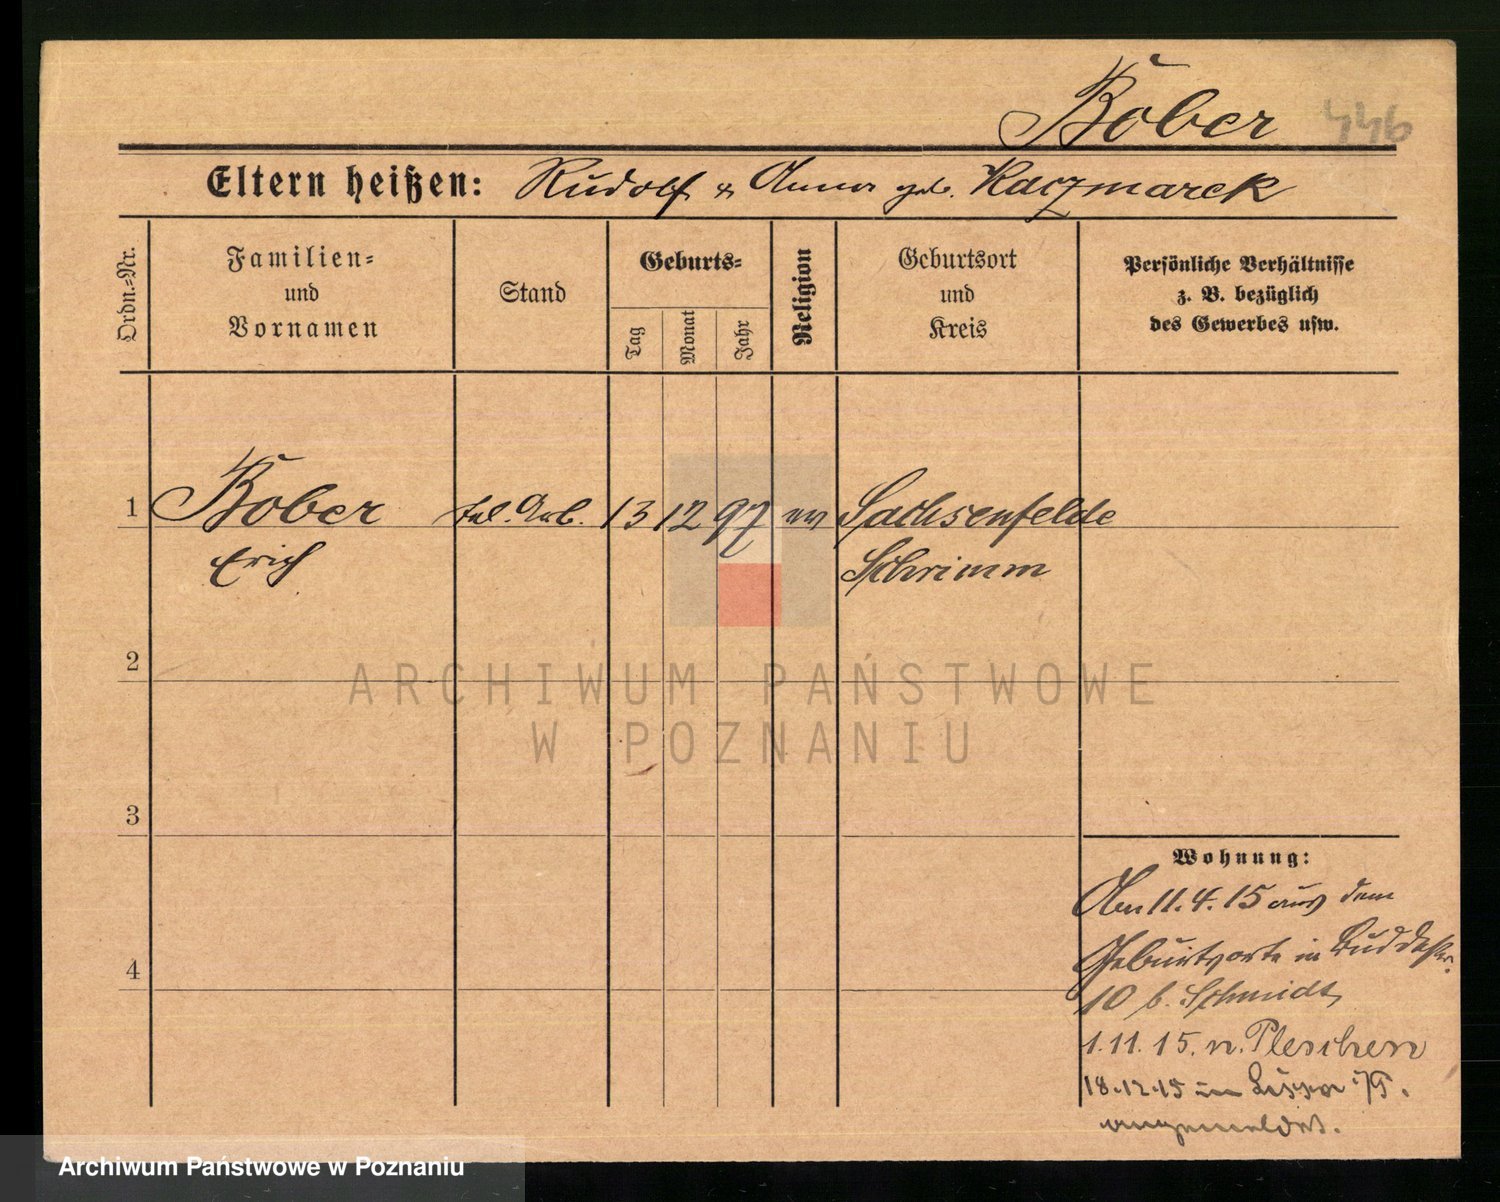 Bober 446
Eltern heißen: Rudolf & Anna geb. Kaczmarek
Ordn.-Nr.
Familien-
und
Vornamen
Stand
Geburts-
Tag
Monat
Jahr
Religion
Geburtsort
und
Kreis
Persönliche Verhältnisse
z. B. bezüglich
des Gewerbes usw.
1 Bober 13 12 97 ev Sachsenfelde
Erich Schrimm
2
3
4
Wohnung:
Am 11.4.15 aus dem
Geburtsorte in Buddestr.
10 b. Schmidt
1.11.15. n. Pleschen
18.12.15 in Lissa i/P.
angemeldet.
ARCHIWUM PAŃSTWOWE
W POZNANIU
Archiwum Państwowe w Poznaniu